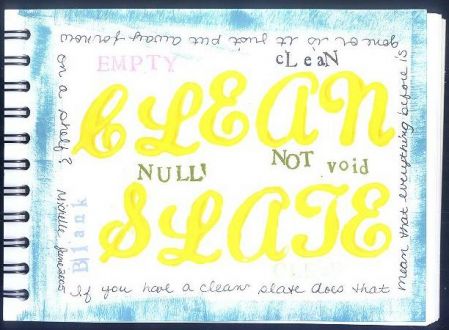 EMPTY
cLeaN
CLEAN
NULL!
NOT void
SLATE
Blank
If you have a clean slate does that
mean that everything before is
gone or is it just put away for now
on a shelf?
Michelle June 2005